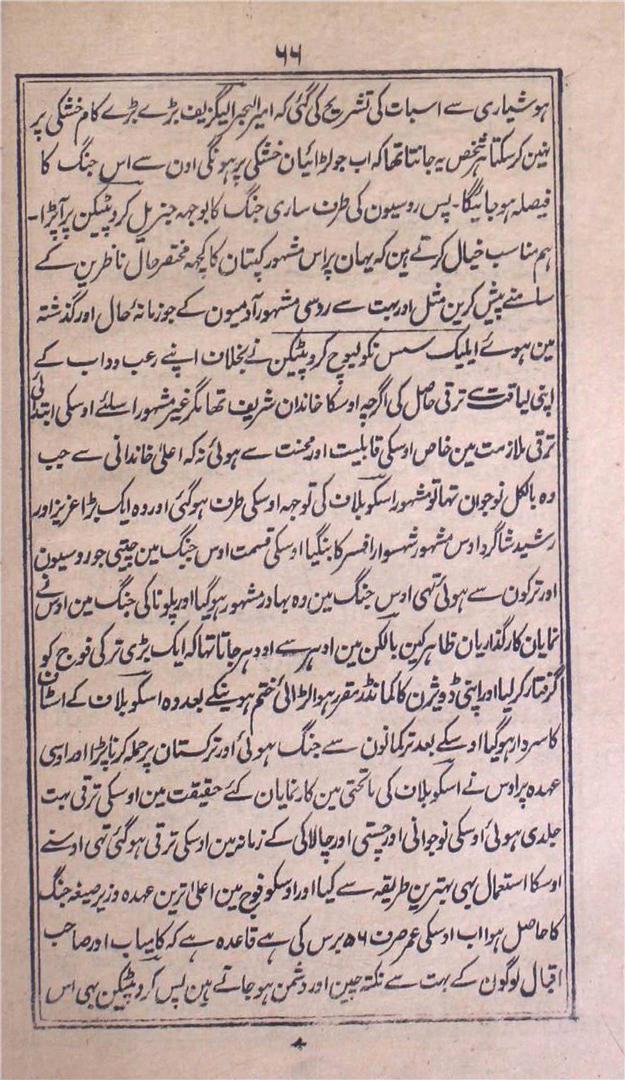 ۶۶
ہوشیاری سے اسبات کی تشریح کی گئی کہ امیر البحر الیگزیف بڑے بڑے کام خشکی پر
نہین کر سکتا ہر شخص یہ جانتا تھا کہ اب جو لڑائیان خشکی پر ہونگی اون سے اس جنگ کا
فیصلہ ہو جائیگا۔ پس روسیون کی طرف ساری جنگ کا بوجہہ جنریل کروپٹیکن پر آپڑا۔
ہم مناسب خیال کرتے ہین کہ یہان پر اس مشہور کپتان کا کچہہ مختصر حال ناظرین کے
سامنے پیش کرین مثل اور بہت سے روسی مشہور آدمیون کے جو زمانۂ حال اور گذشتہ
مین ہوئے ایلیک سس نکولیوچ کروپٹیکن نے بخلاف اپنے رعب و داب کے
اپنی لیاقت سے ترقی حاصل کی اگرچہ اوسکا خاندان شریف تھا مگر غیر مشہور اسلئے اوسکی ابتدائی
ترقی ملازمت مین خاص اوسکی قابلیت اور محنت سے ہوئی نہ کہ اعلیٰ خاندانی سے جب
وہ بالکل نوجوان تہا تو مشہور اسکوبلاف کی توجہہ اوسکی طرف ہو گئی اور وہ ایک بڑا عزیز اور
رشید شاگرد اوس مشہور شہسوار افسر کا بنگیا اوسکی قسمت اوس جنگ مین چیتی جو روسیون
اور ترکون سے ہوئی تہی اوس جنگ مین وہ بہادر مشہور ہو گیا اور پلونا کی جنگ مین اوس نے
نمایان کارگذاریان ظاہر کین بالکن مین اودہر سے اودہر جاتا تہا کہ ایک بڑی ترکی فوج کو
گرفتار کر لیا اور اپنی ڈویژن کا کمانڈر مقرر ہوا لڑائی ختم ہونیکے بعد وہ اسکوبلاف کے اسٹاف
کا سردار ہو گیا اوسکے بعد ترکمانون سے جنگ ہوئی اور ترکستان پر حملہ کرنا پڑا اور اوسی
عہدہ پر اوس نے اسکوبلاف کی ماتحتی مین کار نمایان کئے حقیقت مین اوسکی ترقی بہت
جلدی ہوئی اوسکی نوجوانی اور چستی اور چالاکی کے زمانہ مین اوسکی ترقی ہو گئی تہی اوسنے
اوسکا استعمال بہی بہترین طریقہ سے کیا اور اوسکو فوج مین اعلیٰ ترین عہدہ وزیر صیغہ جنگ
کا حاصل ہوا اب اوسکی عمر صرف ۵۶ برس کی ہے قاعدہ ہے کہ کامیاب اور صاحب
اقبال لوگون کے بہت سے نکتہ چین اور دشمن ہو جاتے ہین پس کروپٹیکن بہی اس